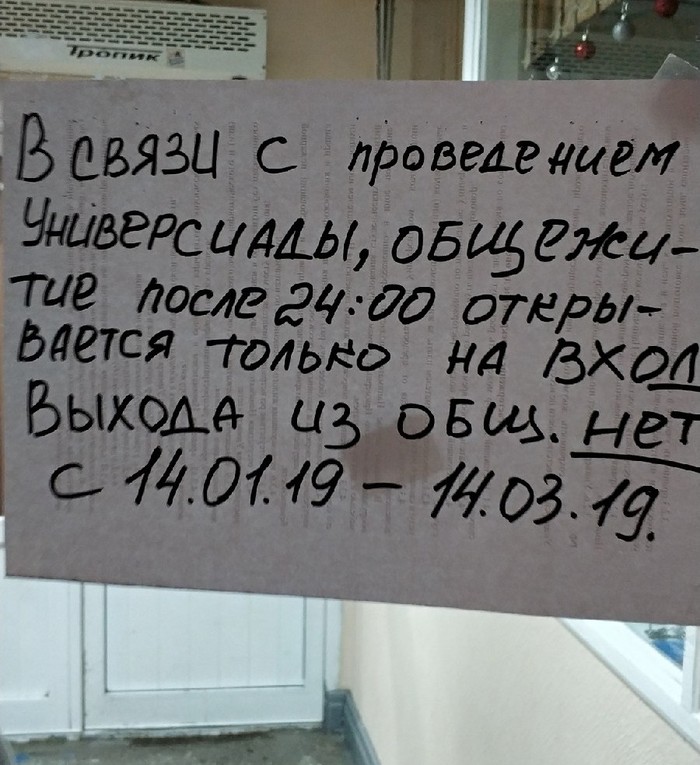 Тропик
В СВЯЗИ С проведением
УНИВЕРСИАДЫ, ОБЩЕжи-
тие после 24:00 откры-
ВАЕТСЯ ТОЛЬКО НА ВХОД
ВЫХОДА ИЗ ОБЩ. НЕТ
С 14.01.19 – 14.03.19.